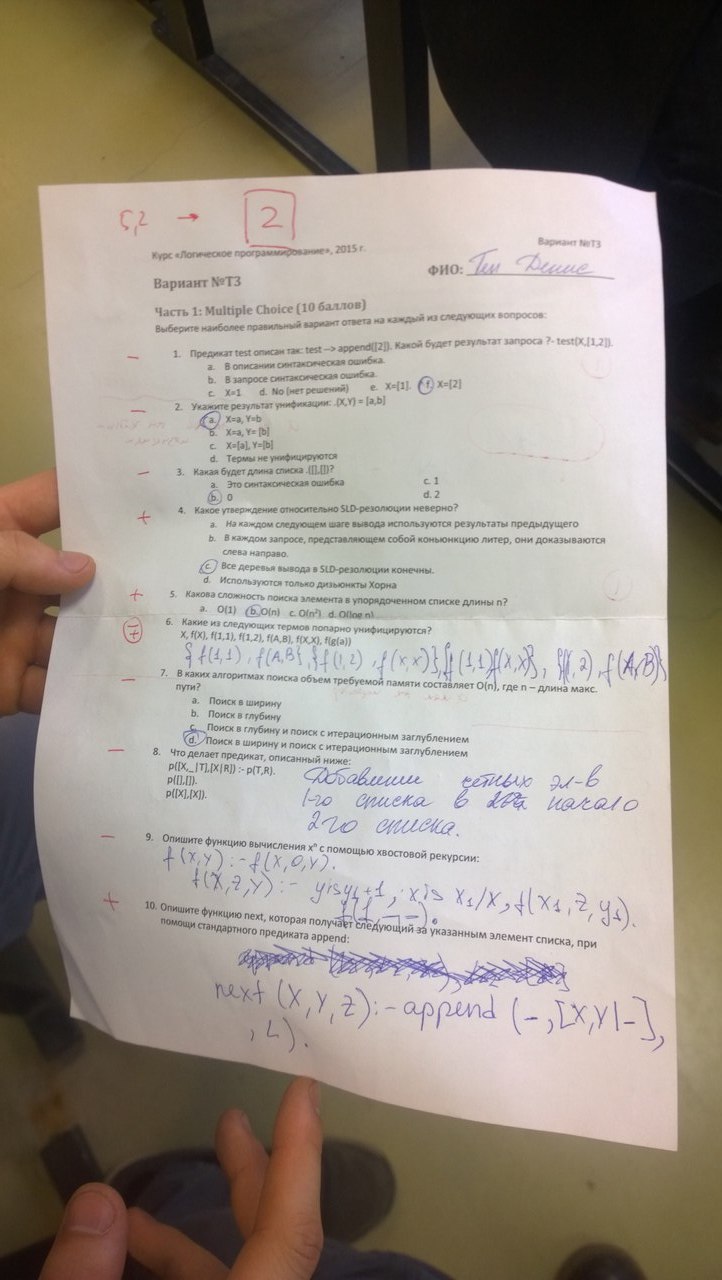 5,2 → 2
Курс «Логическое программирование», 2015 г.
Вариант №Т3
Вариант №Т3
ФИО: Тен Денис
Часть 1: Multiple Choice (10 баллов)
Выберите наиболее правильный вариант ответа на каждый из следующих вопросов:
− 1. Предикат test описан так: test --> append([2]). Какой будет результат запроса ?- test(X,[1,2]).
a. В описании синтаксическая ошибка.
b. В запросе синтаксическая ошибка.
c. X=1 d. No (нет решений) e. X=[1]. f. X=[2]
− 2. Укажите результат унификации: .(X,Y) = [a,b]
a. X=a, Y=b
b. X=a, Y= [b]
c. X=[a], Y=[b]
d. Термы не унифицируются
− 3. Какая будет длина списка .([],[])?
a. Это синтаксическая ошибка c. 1
b. 0 d. 2
+ 4. Какое утверждение относительно SLD-резолюции неверно?
a. На каждом следующем шаге вывода используются результаты предыдущего
b. В каждом запросе, представляющем собой конъюнкцию литер, они доказываются
слева направо.
c. Все деревья вывода в SLD-резолюции конечны.
d. Используются только дизъюнкты Хорна
+ 5. Какова сложность поиска элемента в упорядоченном списке длины n?
a. O(1) b. O(n) c. O(n²) d. O(log n)
6. Какие из следующих термов попарно унифицируются?
X, f(X), f(1,1), f(1,2), f(A,B), f(X,X), f(g(a))
{f(1,1), f(A,B}, {f(1,2), f(x,x)} {f(1,1)f(X,X)}, {f(1,2), f(A,B)}
− 7. В каких алгоритмах поиска объем требуемой памяти составляет O(n), где n – длина макс.
пути?
a. Поиск в ширину
b. Поиск в глубину
c. Поиск в глубину и поиск с итерационным заглублением
d. Поиск в ширину и поиск с итерационным заглублением
− 8. Что делает предикат, описанный ниже:
p([X,_|T],[X|R]) :- p(T,R).
p([],[]).
p([X],[X]).
Добавление четных эл-в
1-го списка в начало
2го списка.
− 9. Опишите функцию вычисления xⁿ с помощью хвостовой рекурсии:
f(x,y):-f(x,0,y).
f(x,z,y):- y is y1+1, x is x1/x, f(x1,z,y1).
+ 10. Опишите функцию next, которая получает следующий за указанным элемент списка, при
помощи стандартного предиката append:
next (X,Y,Z):-append (-,[X,Y|-],
,L).